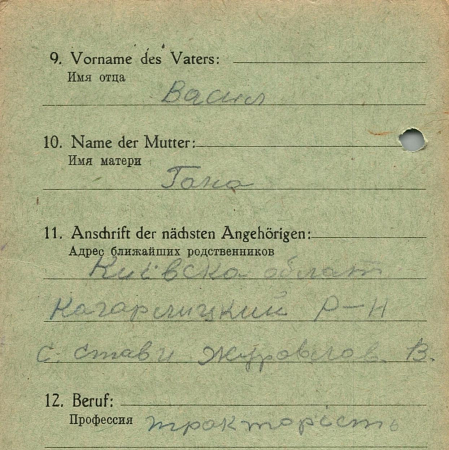 9. Vorname des Vaters:
Имя отца
Васил
10. Name der Mutter:
Имя матери
Гана
11. Anschrift der nächsten Angehörigen:
Адрес ближайших родственников
Київска област
Кагарлицкий Р-Н
с. стави В.
12. Beruf:
Профессия тракторість